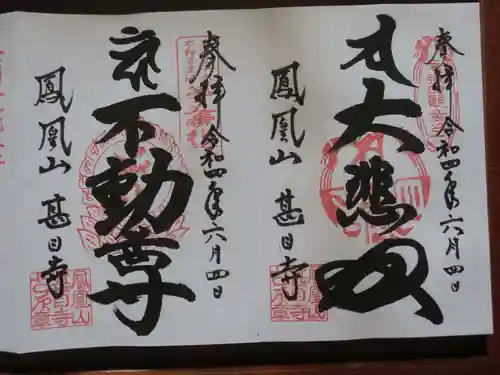 奉拝 令和四年六月四日
大悲殿
鳳凰山 甚目寺
奉拝 令和四年六月四日
不動尊
鳳凰山 甚目寺